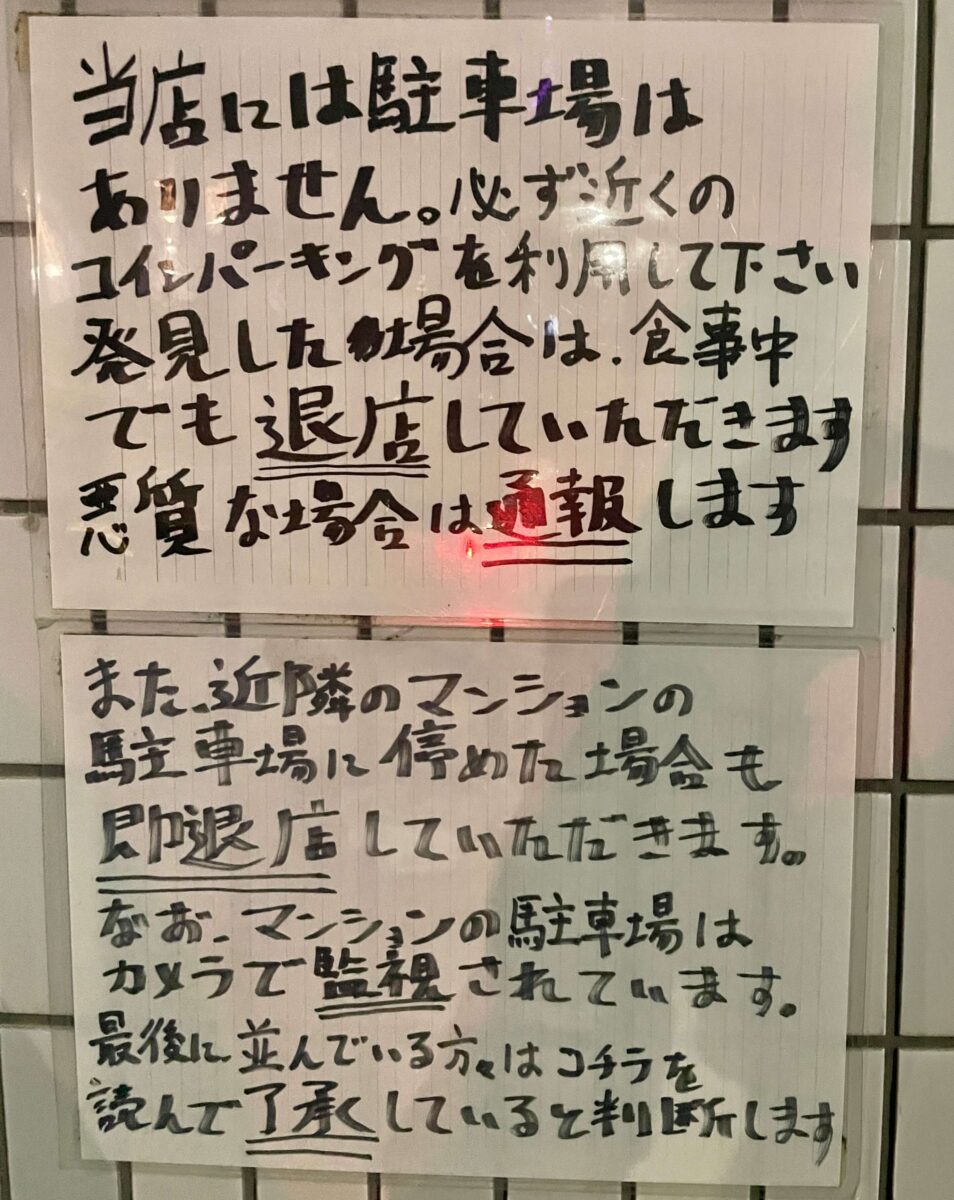 当店には駐車場は
ありません。必ず近くの
コインパーキングを利用して下さい
発見した場合は、食事中
でも退店していただきます
悪質な場合は通報します
また、近隣のマンションの
駐車場に停めた場合も
即退店していただきます。
なお、マンションの駐車場は
カメラで監視されています。
最後に並んでいる方々はコチラを
読んで了承していると判断します